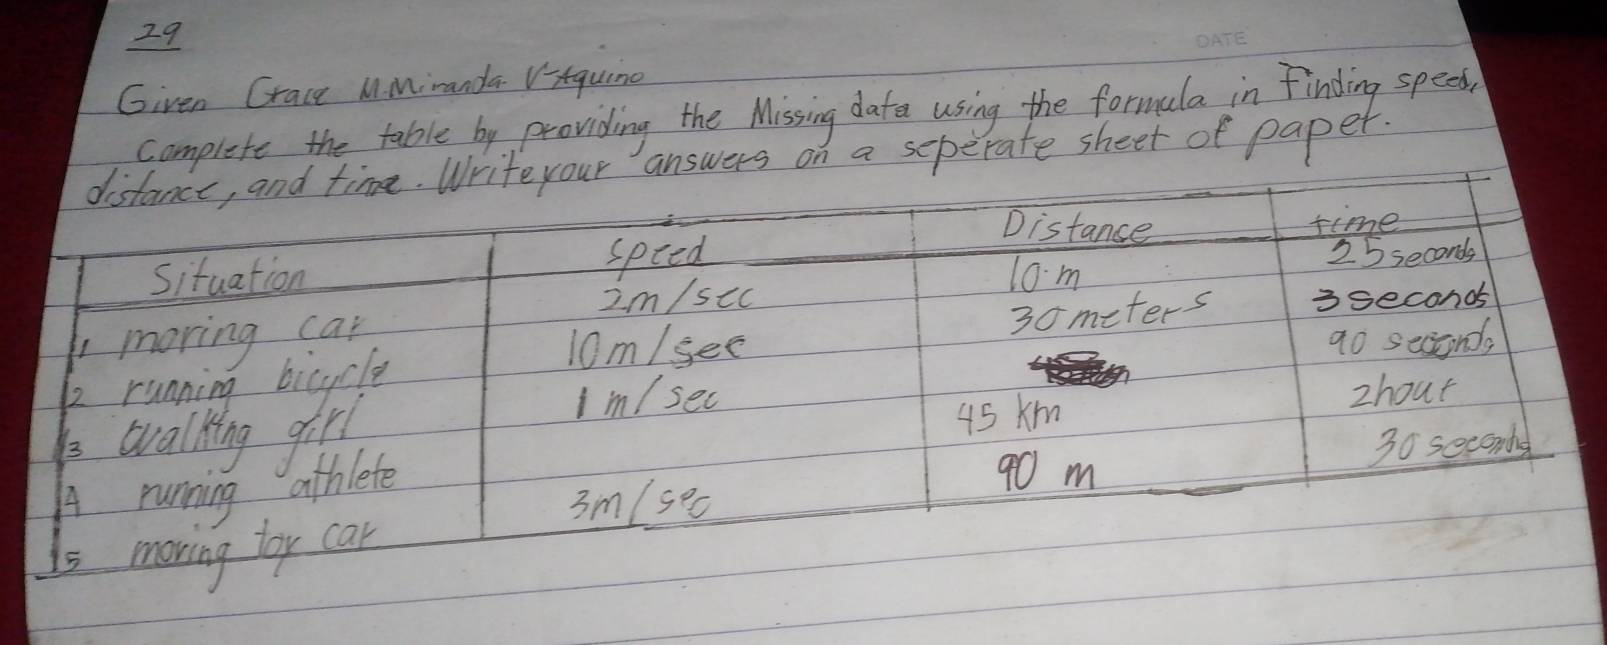 29
DATE
Given Grace M. Miranda V-Aquino
Complete the table by providing the Missing data using the formula in Finding speed,
distance, and time. Write your answers on a seperate sheet of paper.
Situation speed Distance time
1 moving car 2m/sec 10 m 25 seconds
2 running bicycle 10m/sec 30 meters 3 seconds
3 walking girl 1 m/sec 90 seconds
4 running athlete 45 km 2hour
5 moving toy car 3m/sec 90 m 30 seconds